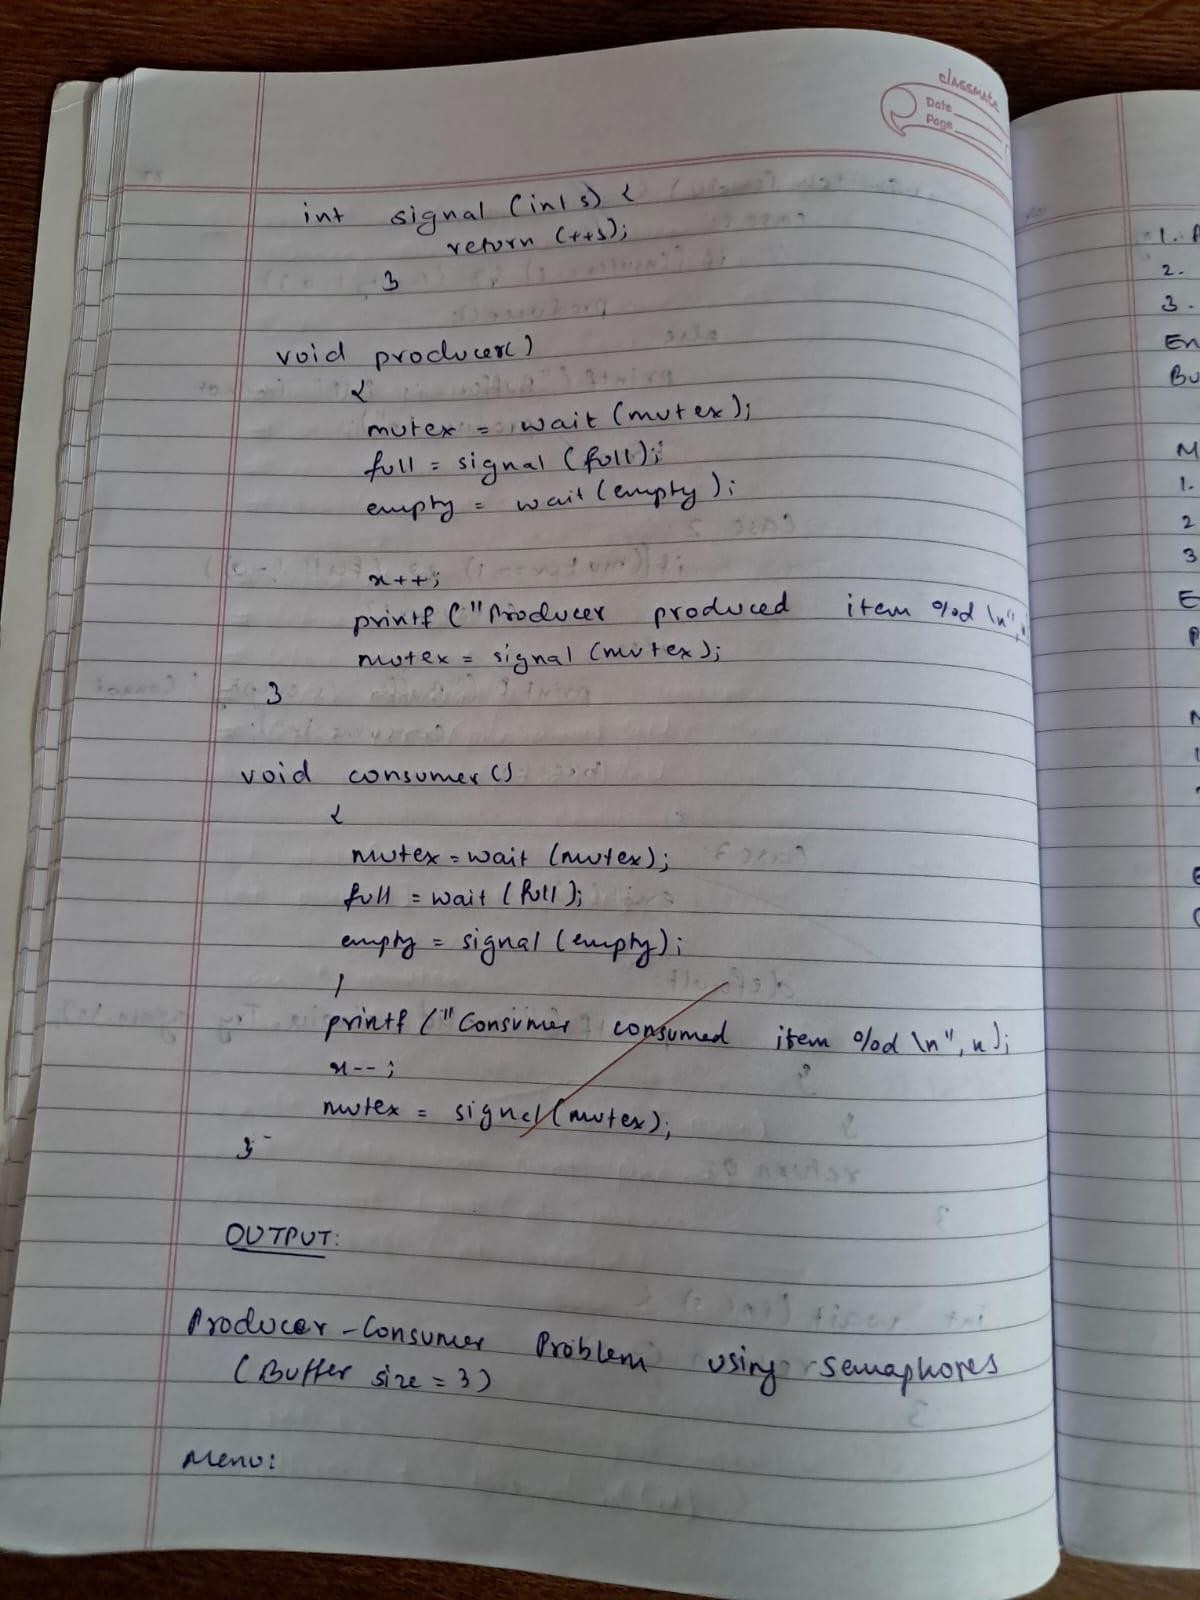 classmate
Date
Page
int signal (int s) {
return (++s);
}
void producer()
{
mutex = wait (mutex);
full = signal (full);
empty = wait (empty);
x++;
printf ("Producer produced item %d \n",
mutex = signal (mutex);
}
void consumer()
{
mutex = wait (mutex);
full = wait (full);
empty = signal (empty);
printf ("Consumer consumed item %d \n", x);
x--;
mutex = signal (mutex);
}
OUTPUT:
Producer-Consumer Problem using semaphores
(Buffer size = 3)
Menu:
1.
2.
3.
En
Bu
M
1.
2
3
E
P